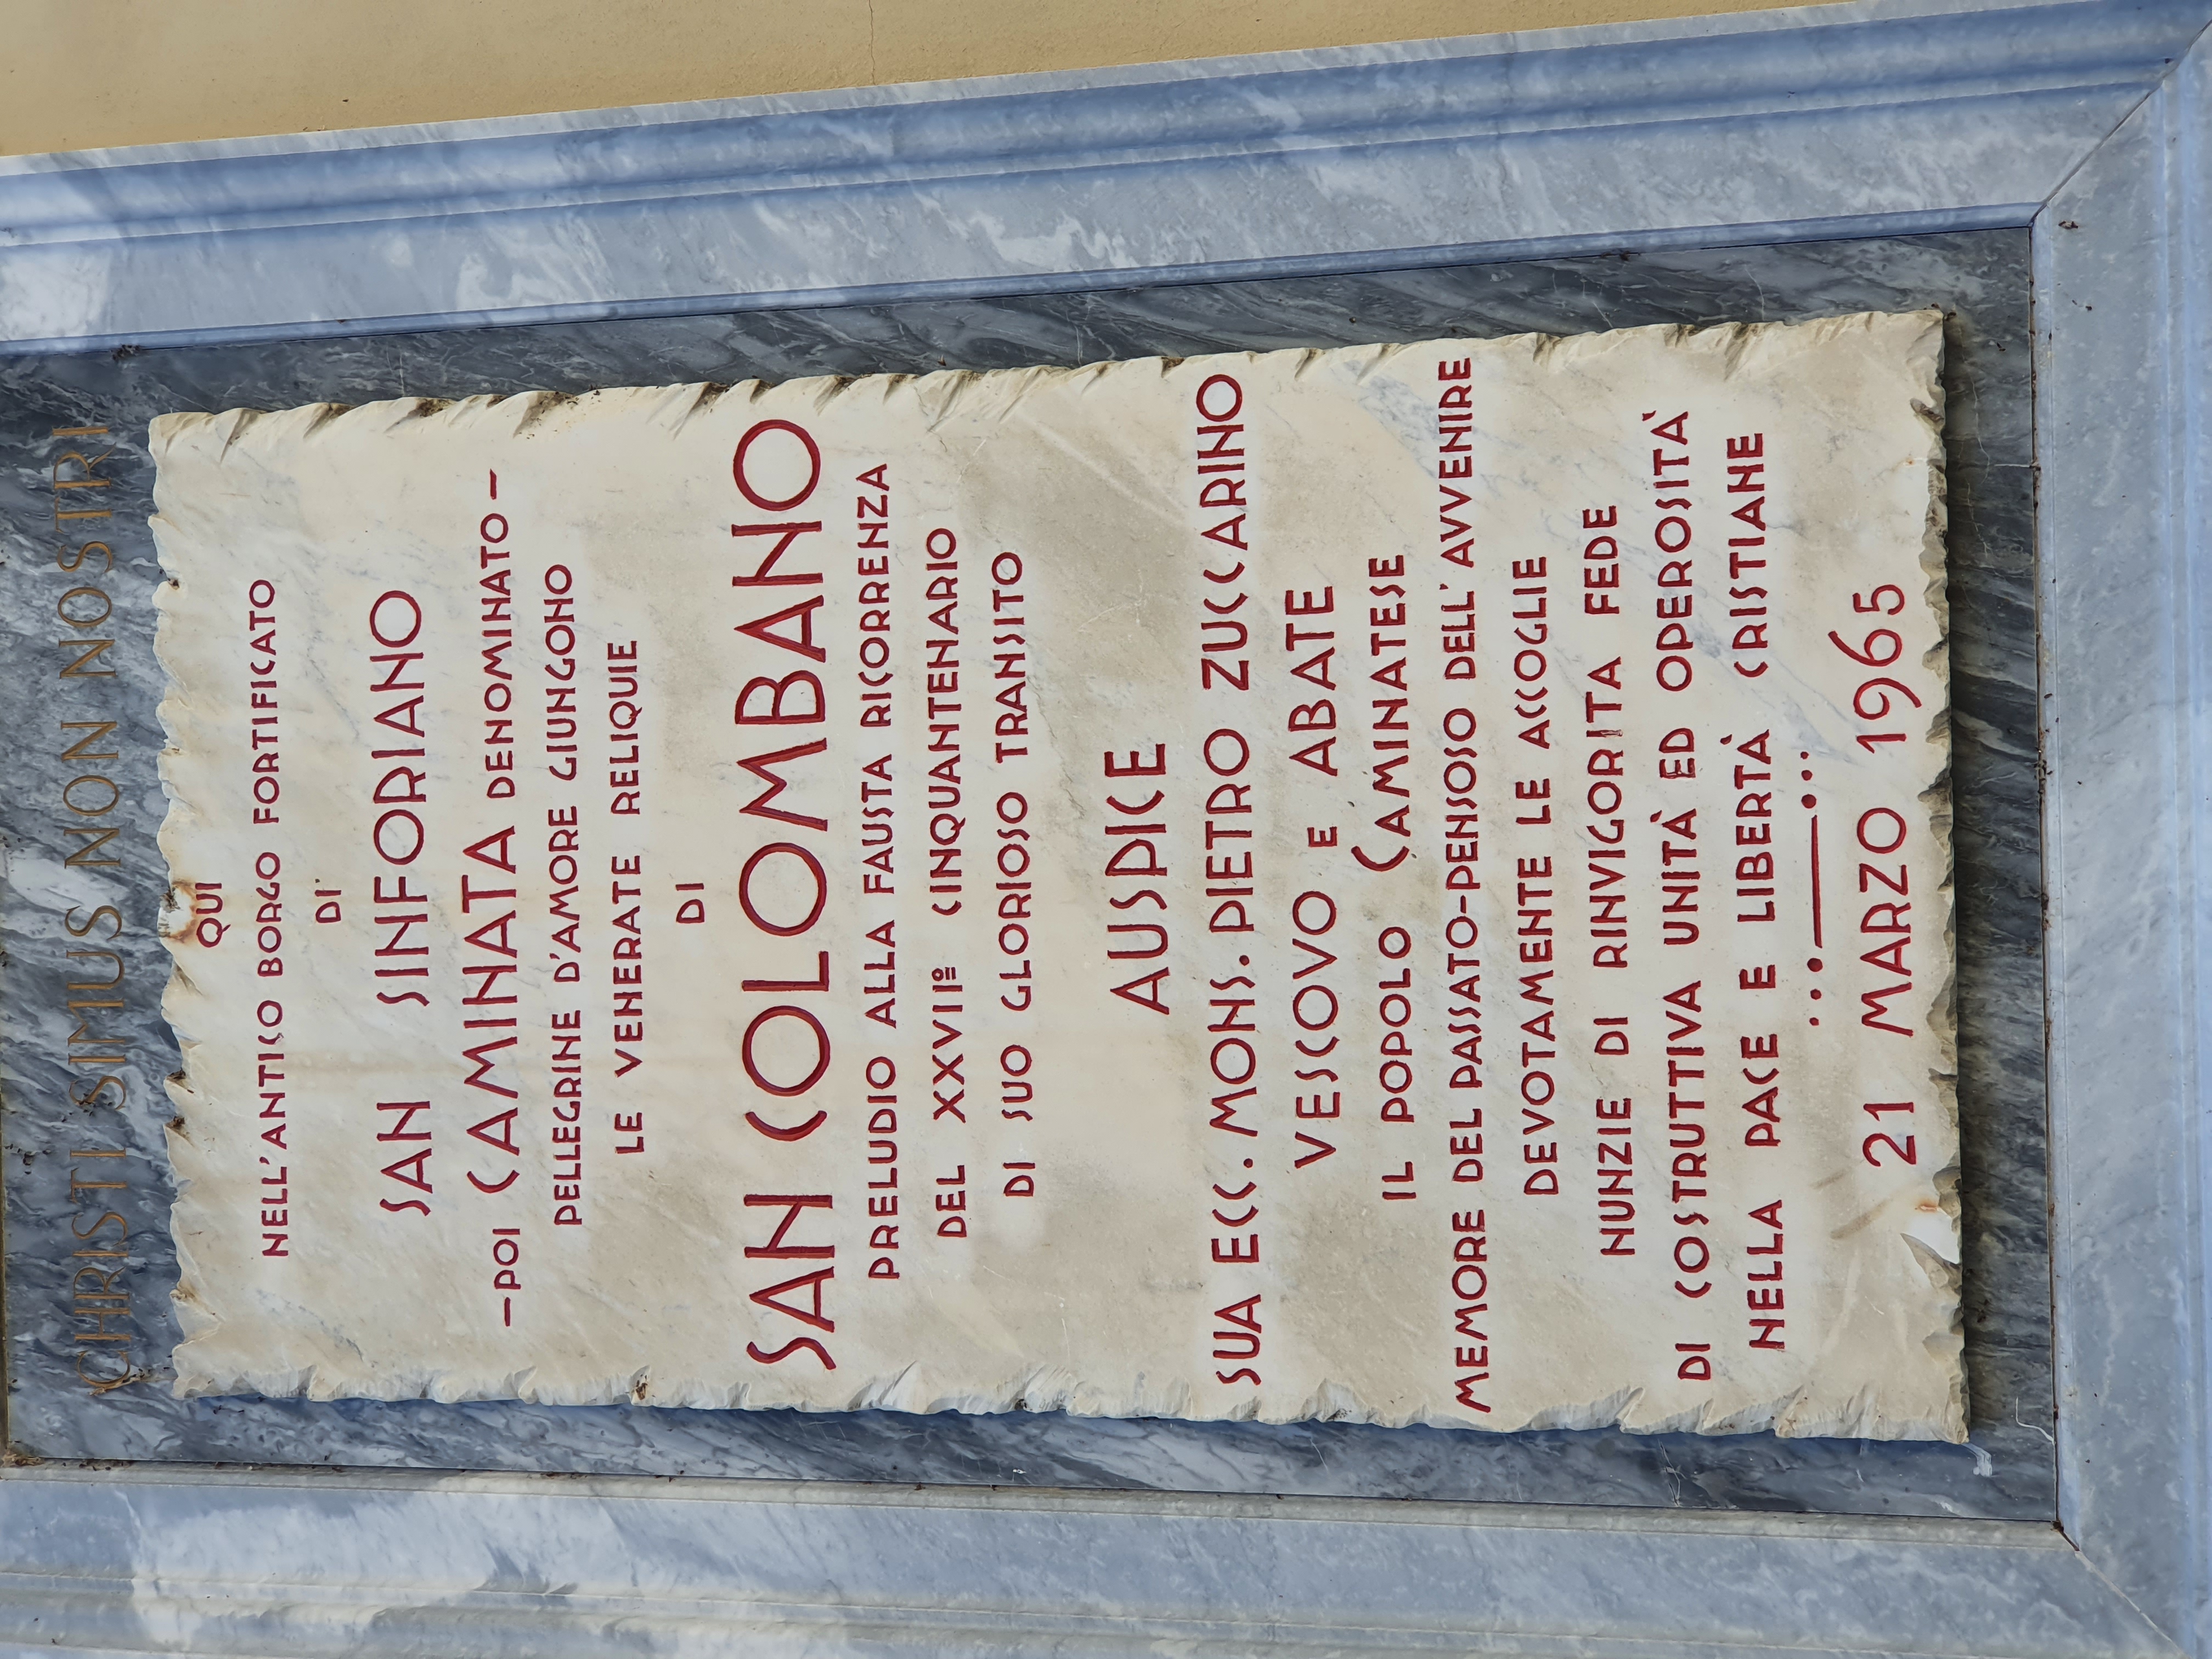 CHRISTI SIMUS NON NOSTRI
QUI
NELL'ANTICO BORGO FORTIFICATO
DI
SAN SINFORIANO
–POI CAMINATA DENOMINATO–
PELLEGRINE D'AMORE GIUNGONO
LE VENERATE RELIQUIE
DI
SAN COLOMBANO
PRELUDIO ALLA FAUSTA RICORRENZA
DEL XXVIIº CINQUANTENARIO
DI SUO GLORIOSO TRANSITO
AUSPICE
SUA ECC. MONS. PIETRO ZUCCARINO
VESCOVO E ABATE
IL POPOLO CAMINATESE
MEMORE DEL PASSATO-PENSOSO DELL'AVVENIRE
DEVOTAMENTE LE ACCOGLIE
NUNZIE DI RINVIGORITA FEDE
DI COSTRUTTIVA UNITÀ ED OPEROSITÀ
NELLA PACE E LIBERTÀ CRISTIANE
21 MARZO 1965